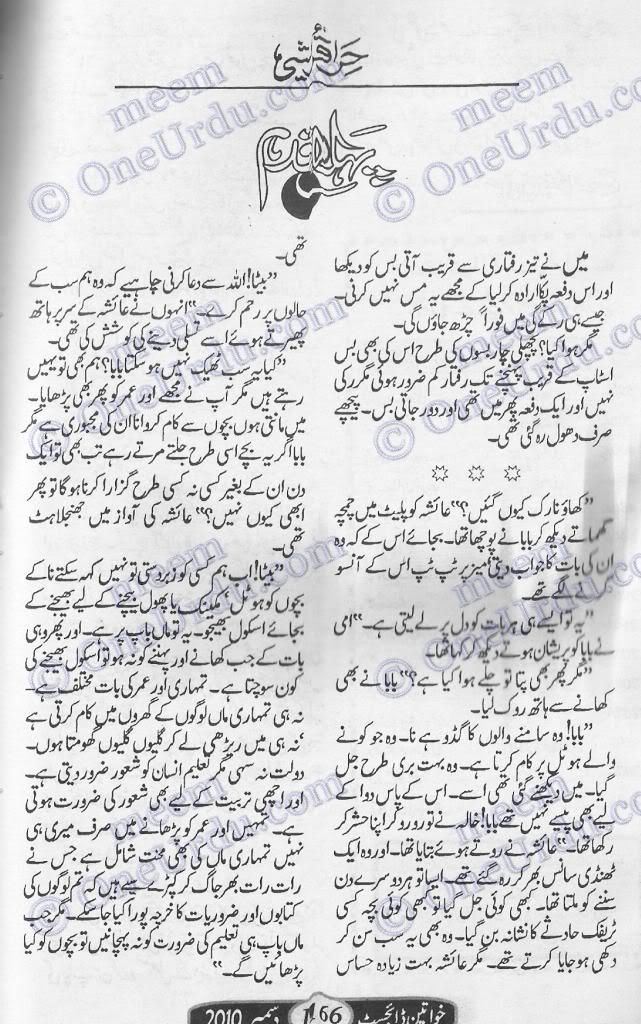 حرا قریشی
پہلا قدم
میں نے تیز رفتاری سے قریب آتی بس کو دیکھا
اور اس دفعہ پکا ارادہ کر لیا کے مجھے یہ مس نہیں کرنی۔
جیسے ہی رکے گی میں فوراً چڑھ جاؤں گی۔
مگر ہوا کیا؟ پچھلی چار بسوں کی طرح اس کی بھی بس
اسٹاپ کے قریب پہنچنے تک رفتار کم ضرور ہوئی مگر رکی
نہیں اور ایک دفعہ پھر میں تھی اور دور جاتی بس۔ پیچھے
صرف دھول رہ گئی تھی۔
☼ ☼ ☼
”کھاؤ نا رک کیوں گئیں؟“ عائشہ کو پلیٹ میں چمچہ
گھماتے دیکھ کر بابا نے پوچھا تھا۔ بجائے اس کے کہ وہ
ان کی بات کا جواب دیتی میز پر ٹپ ٹپ اس کے آنسو
گرنے لگے تھے۔
”یہ تو ایسے ہی ہر بات کو دل پر لے لیتی ہے۔“ امی
نے بابا کو پریشان ہوتے دیکھ کر کہا تھا۔
”مگر پھر بھی پتا تو چلے ہوا کیا ہے؟“ بابا نے بھی
کھانے سے ہاتھ روک لیا۔
”بابا! وہ سامنے والوں کا گڈو ہے نا۔ وہ جو کونے
والے ہوٹل پر کام کرتا ہے۔ وہ بہت بری طرح جل
گیا۔ میں دیکھنے گئی تھی اسے۔ اس کے پاس دوا کے
لیے بھی پیسے نہیں تھے بابا! خالہ نے تو رو رو کر اپنا حشر کر
رکھا تھا۔“ عائشہ نے روتے ہوئے بتایا تھا۔ اور وہ ایک
ٹھنڈی سانس بھر کر رہ گئے تھے۔ ایسا تو ہر دوسرے دن
سننے کو ملتا تھا۔ کبھی کوئی جل گیا تو کبھی کوئی بچہ کسی
ٹریفک حادثے کا نشانہ بن گیا۔ وہ بھی یہ سب سن کر
دکھی ہو جایا کرتے تھے۔ مگر عائشہ بہت زیادہ حساس
تھی۔
”بیٹا! اللہ سے دعا کرنی چاہیے کہ وہ ہم سب کے
حالوں پر رحم کرے۔“ انہوں نے عائشہ کے سر پر ہاتھ
پھیرتے ہوئے اسے تسلی دینے کی کوشش کی تھی۔
”کیا یہ سب ٹھیک نہیں ہو سکتا بابا؟ ہم بھی تو یہیں
رہتے ہیں مگر آپ نے مجھے اور عمر کو پھر بھی پڑھایا۔
میں مانتی ہوں بچوں سے کام کروانا ان کی مجبوری ہے مگر
بابا اگر یہ بچے اسی طرح جلتے مرتے رہے تب بھی تو ایک
دن ان کے بغیر کسی نہ کسی طرح گزارا کرنا ہو گا تو پھر
ابھی کیوں نہیں؟“ عائشہ کی آواز میں جھنجلاہٹ
تھی۔
”بیٹا! اب ہم کسی کو زبردستی تو نہیں کہہ سکتے نا کے
بچوں کو ہوٹل، مکینک یا پھول بیچنے کے لیے بھیجنے کے
بجائے اسکول بھیجو۔ یہ تو ماں باپ پر ہے۔ اور پھر وہی
بات کے جب کھانے اور پہننے کو نہ ہو تو اسکول بھیجنے کی
کون سوچتا ہے۔ تمہاری اور عمر کی بات مختلف ہے۔
نہ ہی تمہاری ماں لوگوں کے گھروں میں کام کرتی ہے
نہ ہی میں ریڑھی لے کر گلیوں گلیوں گھومتا ہوں۔
دولت نہ سہی مگر تعلیم انسان کو شعور ضرور دیتی ہے۔
اور اچھی تربیت کے لیے بھی شعور کی ضرورت ہوتی
ہے۔ تمہیں اور عمر کو پڑھانے میں صرف میری ہی
نہیں تمہاری ماں کی بھی محنت شامل ہے جس نے
رات رات بھر جاگ کر کپڑے سیے ہیں کہ تم لوگوں کی
کتابوں اور ضروریات کا خرچہ پورا کیا جا سکے۔ مگر جب
ماں باپ ہی تعلیم کی ضرورت کو نہ پہچانیں تو بچوں کو کیا
پڑھائیں گے۔“
خواتین ڈائجسٹ 166 دسمبر 2010
meem
© OneUrdu.com